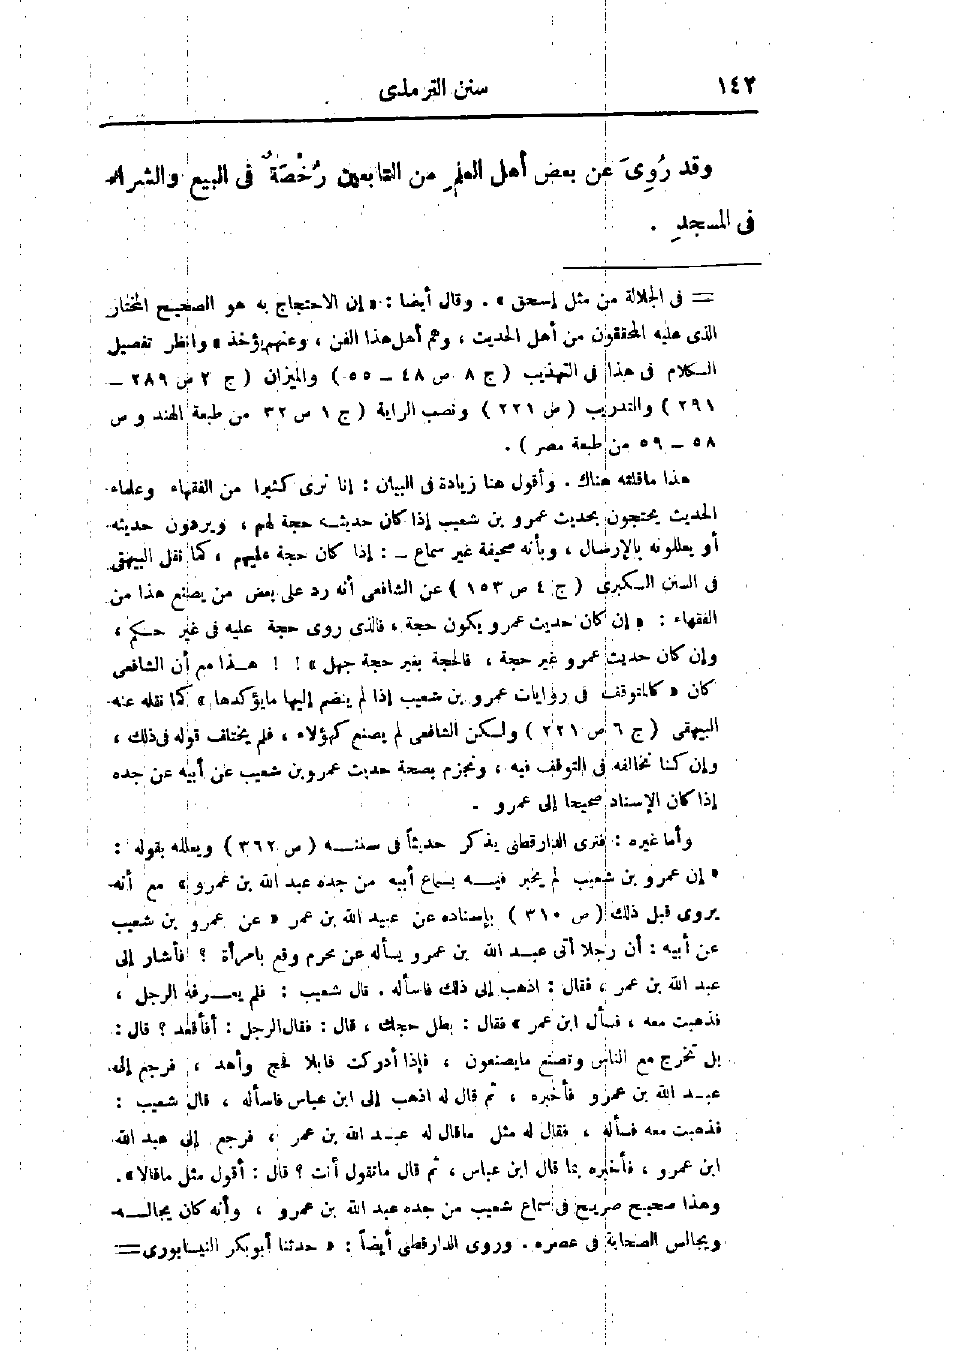 ١٤٣
سنن الترمذى
وقد رُوِىَ عن بعض أهل العلمِ من التابعين رُخْصَةٌ فى البيع والشراء
فى المسجدِ .
= فى الجلالة من مثل إسحق » . وقال أيضا : « إن الاحتجاج به هو الصحيح المختار
الذى عليه المحققون من أهل الحديث ، وهم أهل هذا الفن ، وعنهم يؤخذ » وانظر تفصيل
الكلام فى هذا فى التهذيب ( ج ٨ ص ٤٨ ــ ٥٥ ) والميزان ( ج ٢ ص ٢٨٩ ــ
٢٩١ ) والتدريب ( ص ٢٢١ ) ونصب الراية ( ج ١ ص ٣٢ من طبعة الهند و ص
٥٨ ــ ٥٩ من طبعة مصر ) .
هذا ماقلته هناك . وأقول هنا زيادة فى البيان : إنا نرى كثيرا من الفقهاء وعلماء
الحديث يحتجون بحديث عمرو بن شعيب إذا كان حديثه حجة لهم ، ويردون حديثه
أو يعللونه بالإرسال ، وبأنه صحيفة غير سماع ــ : إذا كان حجة عليهم ، كما نقل البيهقى
فى السنن الكبرى ( ج ٤ ص ١٥٣ ) عن الشافعى أنه رد على بعض من يصنع هذا من
الفقهاء : « إن كان حديث عمرو يكون حجة ، فالذى روى حجة عليه فى غير حكم ،
وإن كان حديث عمرو غير حجة ، فالحجة بغير حجة جهل » ! ! هذا مع أن الشافعى
كان « كالمتوقف فى روايات عمرو بن شعيب إذا لم ينضم إليها مايؤكدها » كما نقله عنه
البيهقى ( ج ٦ ص ٢٢١ ) ولكن الشافعى لم يصنع كهؤلاء ، فلم يختلف قوله فى ذلك ،
وإن كنا نخالفه فى التوقف فيه ، ونجزم بصحة حديث عمرو بن شعيب عن أبيه عن جده
إذا كان الإسناد صحيحا إلى عمرو .
وأما غيره : فترى الدارقطنى يذكر حديثاً فى سننه ( ص ٣٦٢ ) ويعلله بقوله :
« إن عمرو بن شعيب لم يخبر فيه بسماع أبيه من جده عبد الله بن عمرو » مع أنه
يروى قبل ذلك ( ص ٣١٠ ) بإسناده عن عبيد الله بن عمر « عن عمرو بن شعيب
عن أبيه : أن رجلا أتى عبد الله بن عمرو يسأله عن محرم وقع بامرأة ؟ فأشار إلى
عبد الله بن عمر ، فقال : اذهب إلى ذلك فاسأله . قال شعيب : فلم يعرفه الرجل ،
فذهبت معه ، فسأل ابن عمر » فقال : بطل حجك ، قال : فقال الرجل : أفأقعد ؟ قال :
بل تخرج مع الناس وتصنع مايصنعون ، فإذا أدركت قابلا فحج وأهد ، فرجع إلى
عبد الله بن عمرو فأخبره ، ثم قال له اذهب إلى ابن عباس فاسأله ، قال شعيب :
فذهبت معه فسأله ، فقال له مثل ماقال له عبد الله بن عمر ، فرجع إلى عبد الله
ابن عمرو ، فأخبره بما قال ابن عباس ، ثم قال ماتقول أنت ؟ قال : أقول مثل ماقالا » .
وهذا صحيح صريح فى سماع شعيب من جده عبد الله بن عمرو ، وأنه كان يجالسه
ويجالس الصحابة فى عصره . وروى الدارقطنى أيضاً : « حدثنا أبو بكر النيسابورى =